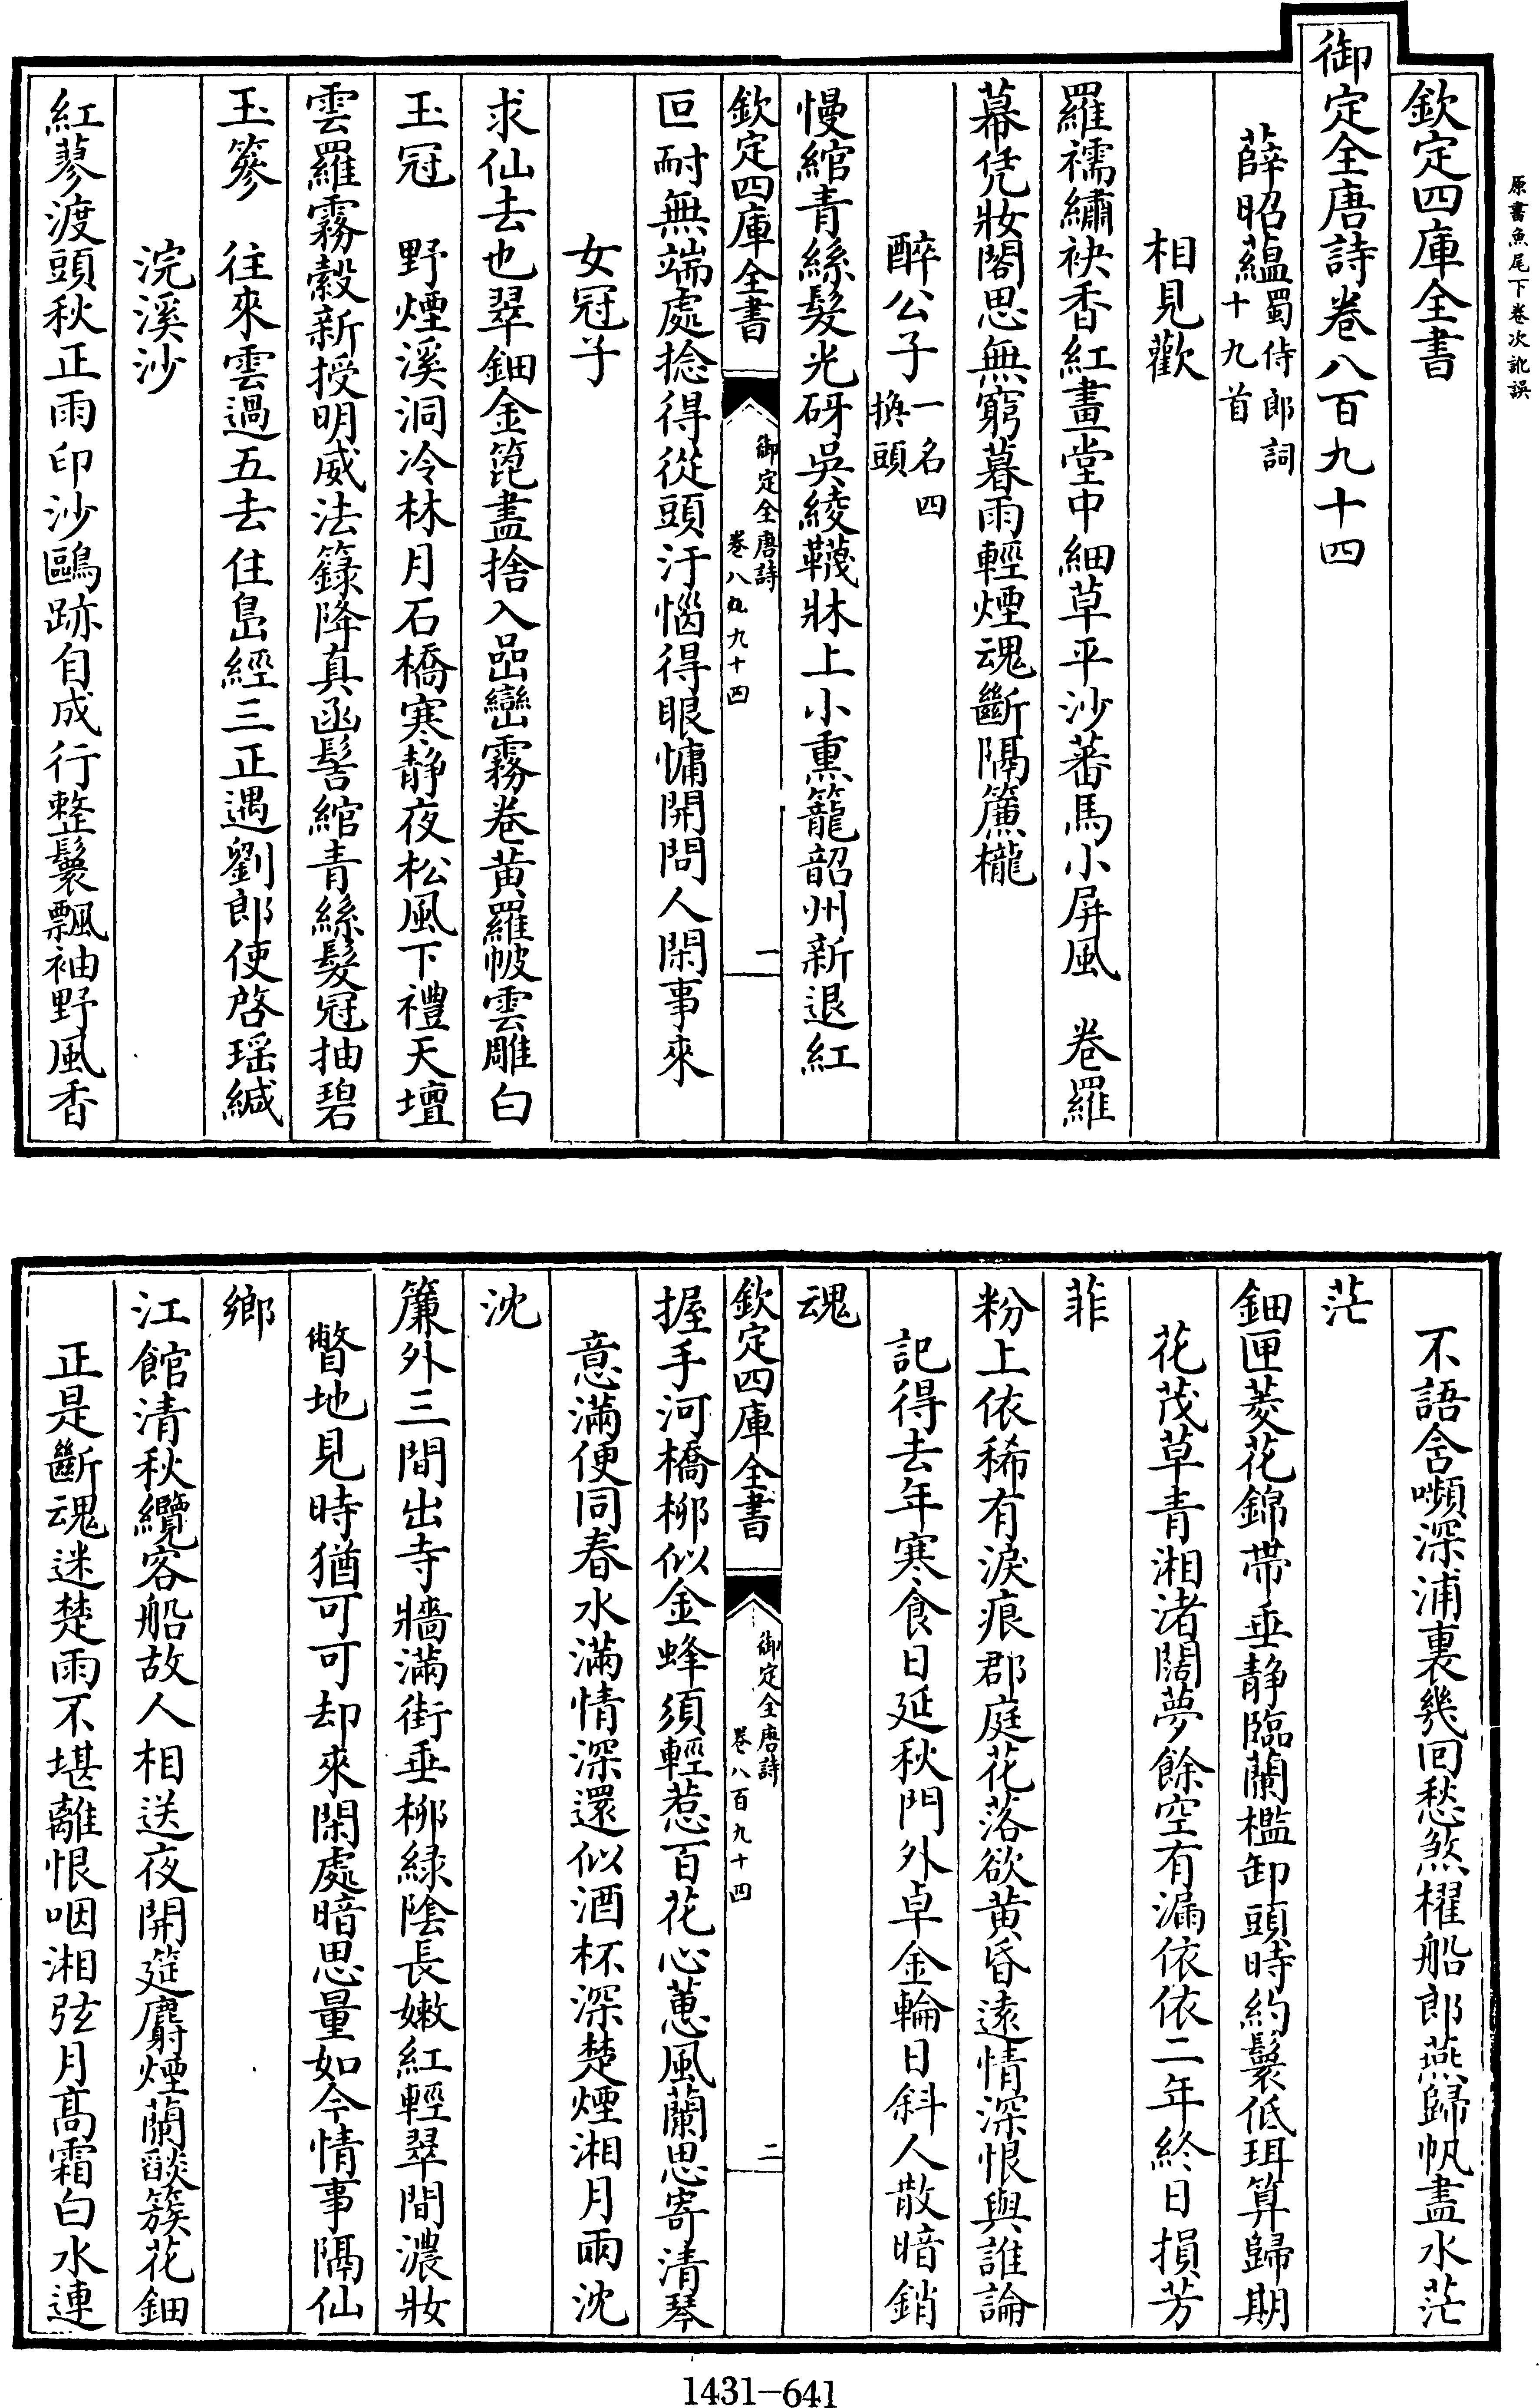 原書魚尾下卷次訛誤
欽定四庫全書
御定全唐詩卷八百九十四
薛昭蘊蜀侍郎詞十九首
相見歡
羅襦繡袂香紅畫堂中細草平沙蕃馬小屏風　卷羅
幕凭妝閣思無窮暮雨輕煙魂斷隔簾櫳
醉公子一名四換頭
慢綰青絲髮光砑吳綾韈牀上小熏籠韶州新退紅
叵耐無端處捻得從頭汙惱得眼慵開問人閑事來
女冠子
求仙去也翠鈿金篦盡捨入嵒巒霧卷黃羅帔雲雕白
玉冠　野煙溪洞冷林月石橋寒靜夜松風下禮天壇
雲羅霧縠新授明威法籙降真函髻綰青絲髮冠抽碧
玉篸　往來雲過五去住島經三正遇劉郎使啓瑶緘
浣溪沙
紅蓼渡頭秋正雨印沙鷗跡自成行整鬟飄袖野風香
欽定四庫全書
御定全唐詩
卷八九九十四
一
不語含嚬深浦裏幾回愁煞櫂船郎燕歸帆盡水茫
茫
鈿匣菱花錦帶垂靜臨蘭檻卸頭時約鬟低珥算歸期
花茂草青湘渚闊夢餘空有漏依依二年終日損芳
菲
粉上依稀有淚痕郡庭花落欲黃昏遠情深恨與誰論
記得去年寒食日延秋門外卓金輪日斜人散暗銷
魂
握手河橋柳似金蜂須輕惹百花心蕙風蘭思寄清琴
意滿便同春水滿情深還似酒杯深楚煙湘月兩沈
沈
簾外三間出寺牆滿街垂柳緑陰長嫩紅輕翠間濃妝
瞥地見時猶可可却來閑處暗思量如今情事隔仙
鄉
江館清秋纜客船故人相送夜開筵麝煙蘭燄簇花鈿
正是斷魂迷楚雨不堪離恨咽湘弦月高霜白水連
欽定四庫全書
御定全唐詩
卷八百九十四
二
1431-641